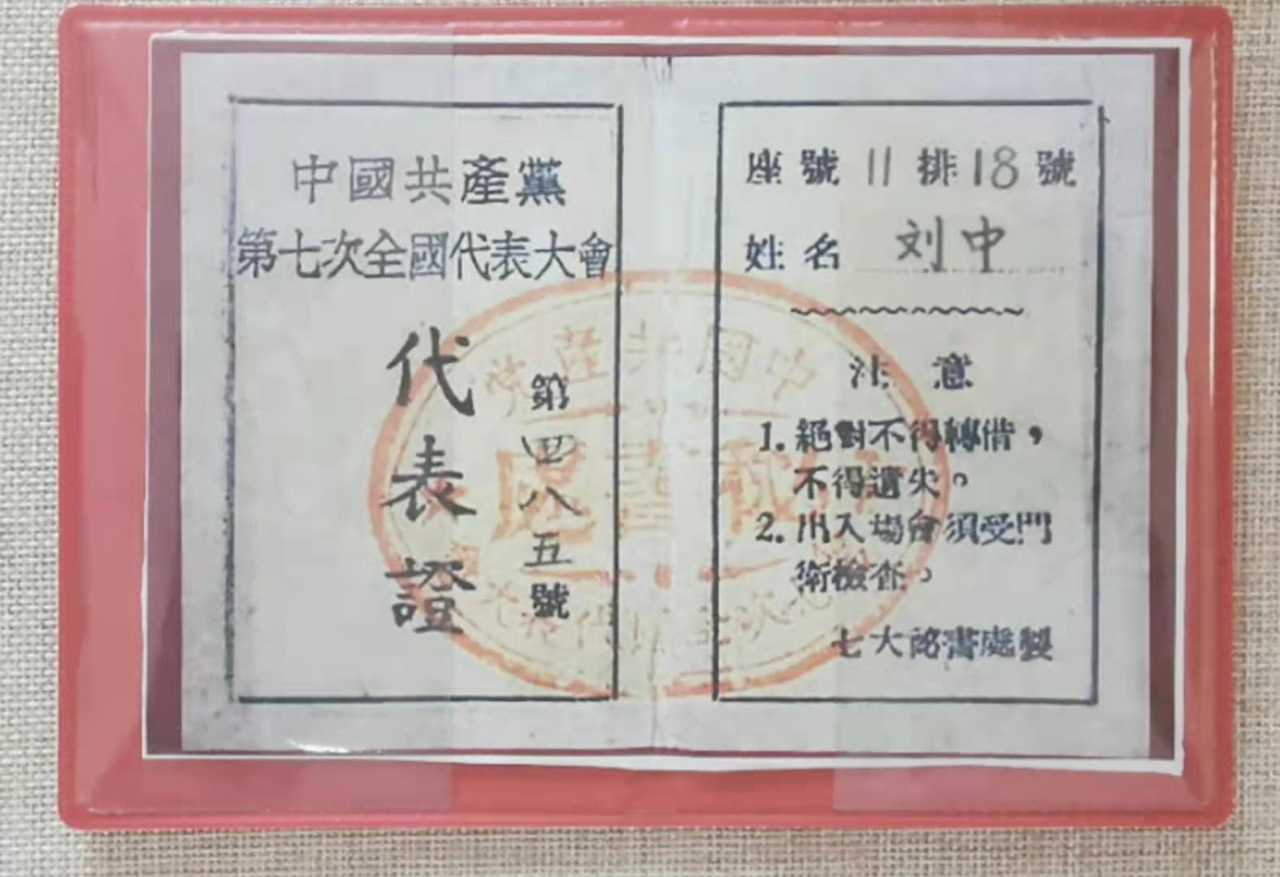 中國共產黨
第七次全國代表大會
代表證
第四八五號
座號 11 排 18 號
姓名 刘中
注意
1. 絕對不得轉借，
不得遺失。
2. 出入場會須受門
衛檢查。
七大祕書處製
中國共產党
秘書處